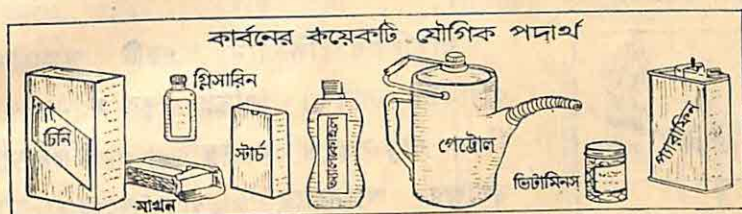 কার্বনের কয়েকটি যৌগিক পদার্থ
চিনি
গ্লিসারিন
মাখন
স্টার্চ
অ্যালকোহল
পেট্রোল
ভিটামিনস্
প্যারাফিন